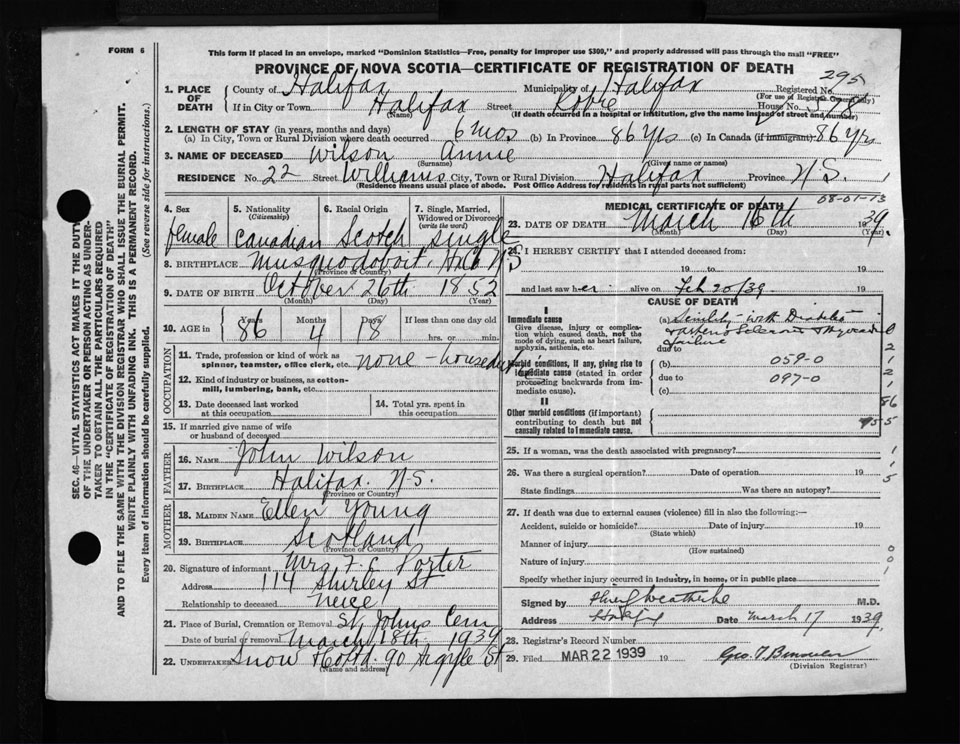 FORM 6
This form if placed in an envelope, marked "Dominion Statistics—Free, penalty for improper use $300," and properly addressed will pass through the mail "FREE"
PROVINCE OF NOVA SCOTIA—CERTIFICATE OF REGISTRATION OF DEATH
295
1. PLACE OF DEATH County of Halifax Municipality of Halifax Registered No.
(For use of Registrar General only)
If in City or Town Halifax Street Robie House No.
(Name) (If death occurred in a hospital or institution, give its name instead of street and number)
2. LENGTH OF STAY (in years, months and days)
(a) In City, Town or Rural Division where death occurred 6 mos (b) In Province 86 yrs (c) In Canada (if immigrant) 86 yrs
3. NAME OF DECEASED Wilson Annie
(Surname) (Given name or names)
RESIDENCE No. 22 Street Williams City, Town or Rural Division Halifax Province N.S.
(Residence means usual place of abode. Post Office Address for residents in rural parts not sufficient)
SEC. 46—VITAL STATISTICS ACT MAKES IT THE DUTY
OF THE UNDERTAKER OR PERSON ACTING AS UNDER-
TAKER TO OBTAIN ALL THE PARTICULARS REQUIRED
IN THE "CERTIFICATE OF REGISTRATION OF DEATH"
AND TO FILE THE SAME WITH THE DIVISION REGISTRAR WHO SHALL ISSUE THE BURIAL PERMIT.
WRITE PLAINLY WITH UNFADING INK. THIS IS A PERMANENT RECORD.
Every item of information should be carefully supplied. (See reverse side for instructions.)
4. Sex female
5. Nationality (Citizenship) Canadian
6. Racial Origin Scotch
7. Single, Married, Widowed or Divorced (write the word) single
8. BIRTHPLACE Musquodoboit, N.S
(Province or Country)
9. DATE OF BIRTH October 26th 1852
(Month) (Day) (Year)
10. AGE in Years 86 Months 4 Days 18 If less than one day old
hrs. or min.
OCCUPATION
11. Trade, profession or kind of work as spinner, teamster, office clerk, etc. none -
12. Kind of industry or business, as cotton-mill, lumbering, bank, etc.
13. Date deceased last worked at this occupation
14. Total yrs. spent in this occupation
15. If married give name of wife or husband of deceased
FATHER
16. NAME John Wilson
17. BIRTHPLACE Halifax. N.S.
(Province or Country)
MOTHER
18. MAIDEN NAME Ellen Young
19. BIRTHPLACE Scotland
(Province or Country)
20. Signature of informant Mrs F. C Porter
Address 114 Shirley St
Relationship to deceased neice
21. Place of Burial, Cremation or Removal St. Johns Cem
Date of burial or removal March 18th 1939
22. UNDERTAKER Snow & Co Ltd. 90 Argyle St
(Name and address)
MEDICAL CERTIFICATE OF DEATH
08-01-13
23. DATE OF DEATH March 16th 1939.
(Month) (Day) (Year)
24. I HEREBY CERTIFY that I attended deceased from:
19 to 19
and last saw her alive on Feb 20/39 19
CAUSE OF DEATH
I
Immediate cause
Give disease, injury or complication which caused death, not the mode of dying, such as heart failure, asphyxia, asthenia, etc.
(a) Senility - with Diabetes
failure
due to
Morbid conditions, if any, giving rise to immediate cause (stated in order proceeding backwards from immediate cause).
(b) 059-0
due to 097-0
(c)
II
Other morbid conditions (if important) contributing to death but not causally related to immediate cause.
25. If a woman, was the death associated with pregnancy?
26. Was there a surgical operation? Date of operation 19
State findings Was there an autopsy?
27. If death was due to external causes (violence) fill in also the following:—
Accident, suicide or homicide? Date of injury 19
(State which)
Manner of injury
(How sustained)
Nature of injury
Specify whether injury occurred in industry, in home, or in public place
Signed by M.D.
Address Halifax Date March 17 1939.
28. Registrar's Record Number
29. Filed MAR 22 1939 19
(Division Registrar)